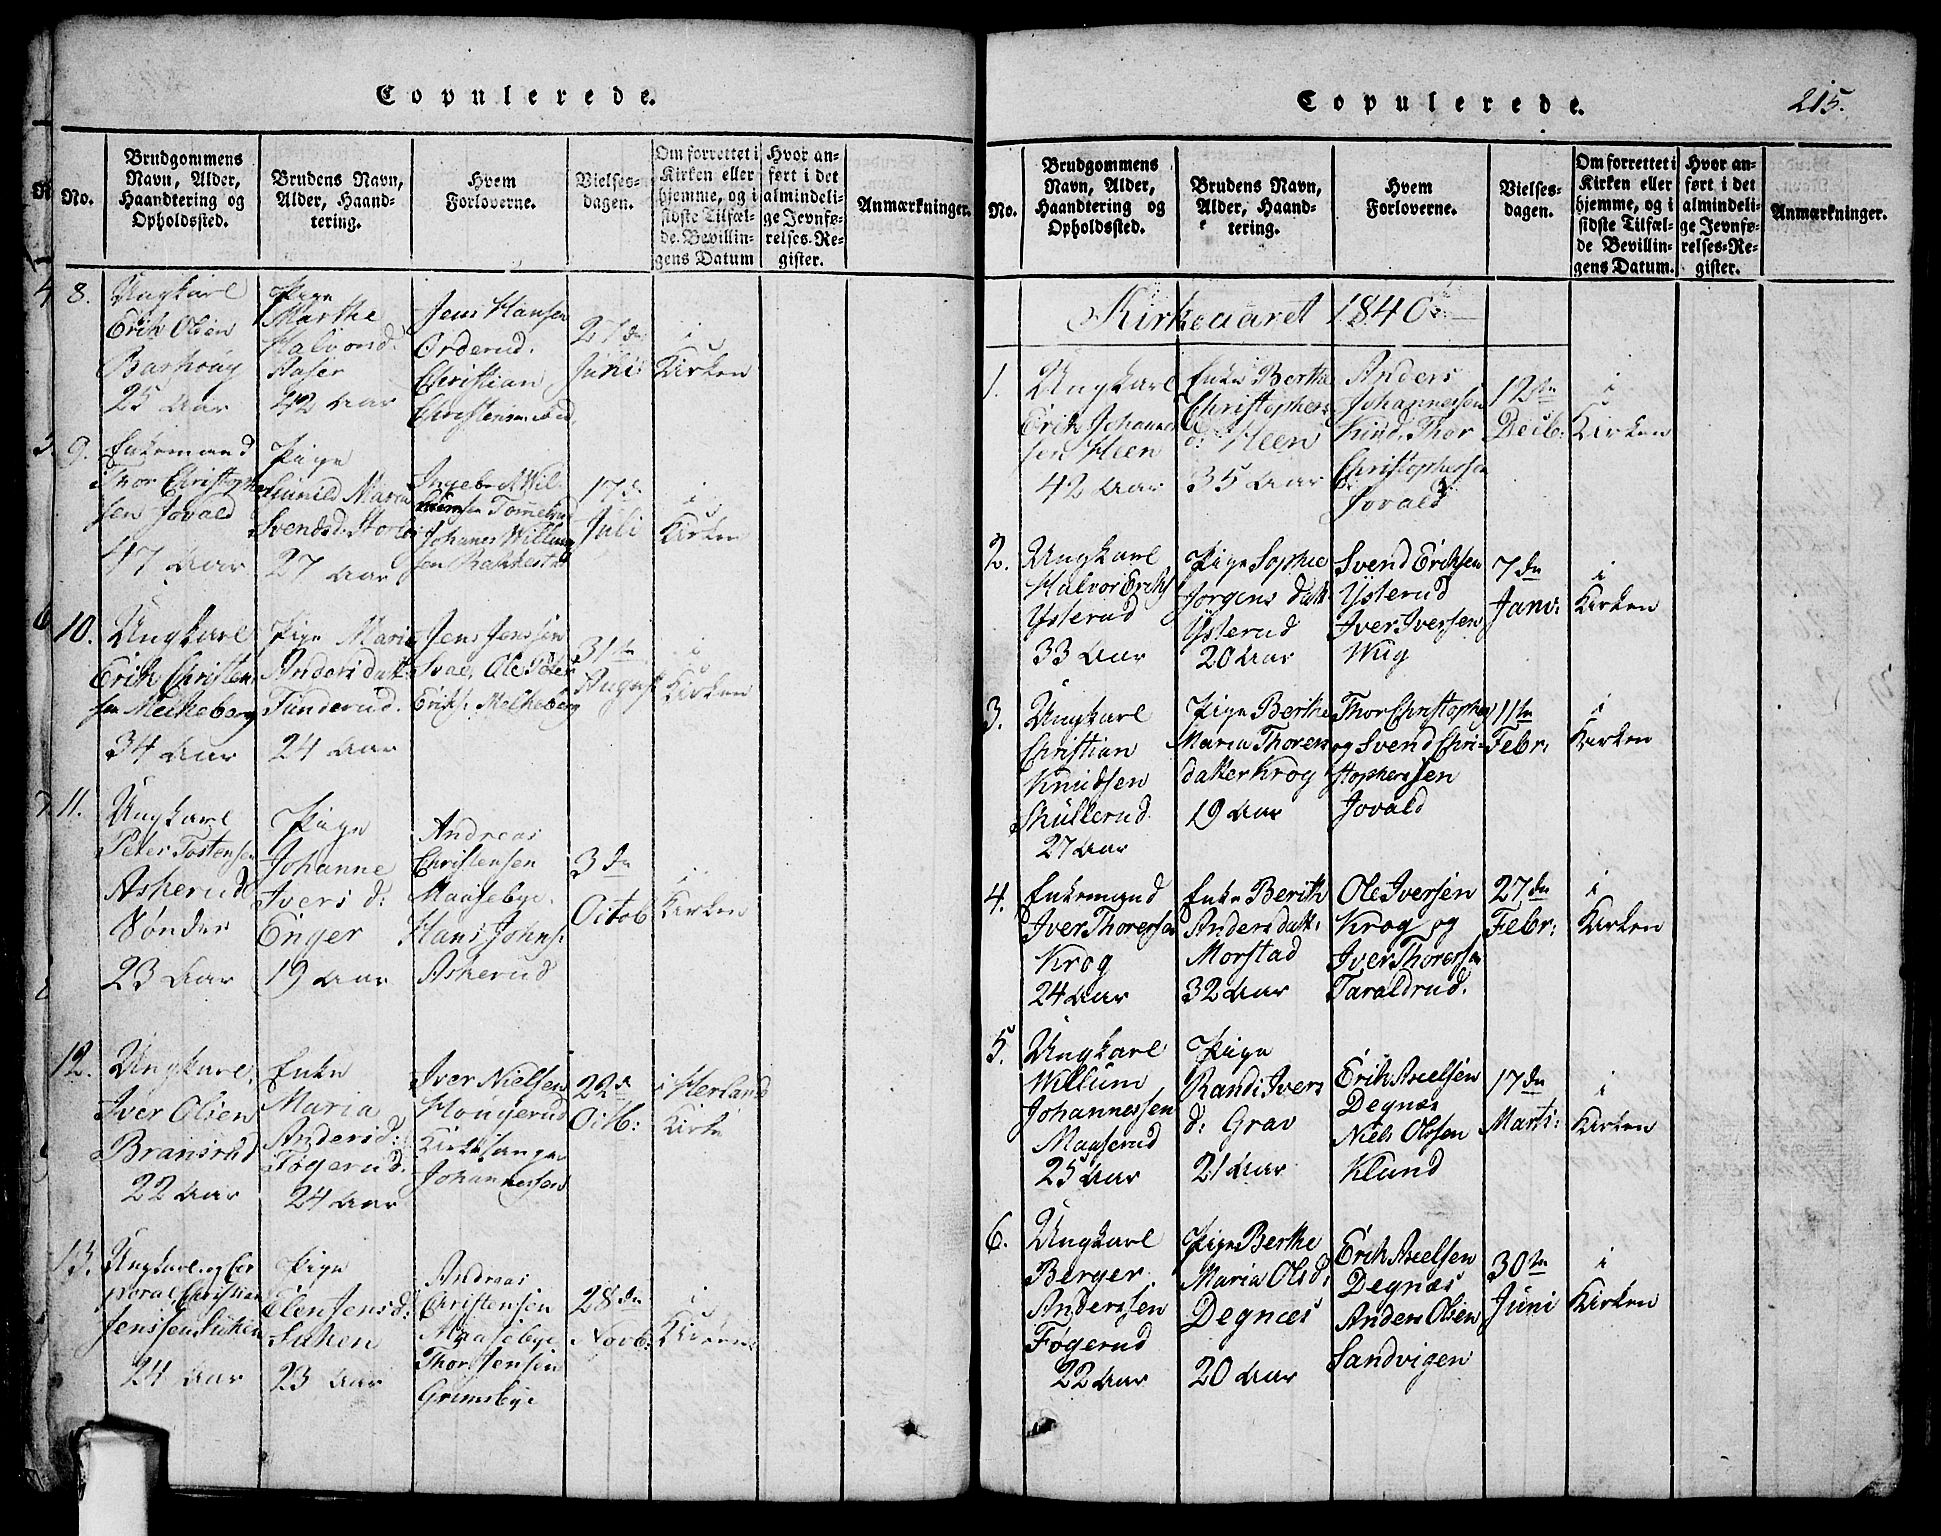 Copulerede.
No.
Brudgommens
Navn, Alder,
Haandtering og
Opholdssted.
Brudens Navn,
Alder, Haand-
tering.
Hvem
Forloverne.
Vielses-
dagen.
Om forrettet i
Kirken eller
hjemme, og i
sidste Tilfæl-
de Bevillin-
gens Datum
Hvor an-
ført i det
almindeli-
ge Jevnfø-
relses-Re-
gister.
Anmærkninger.
8.
Ungkarl
Erik Olsen
25 Aar
Pige
Marthe
Halvorsd.
Aaser
42 Aar
Jens Hansen
Orderud.
Christian
27de
Juni:
i
Kirken
9.
Enkemand
Thor Christopher
sen Jovald
47 Aar
Pige
Gunild Maria
Svendsd.
27 Aar
Johanes Willum
sen Rakkestad
17de
Juli
i
Kirken
10.
Ungkarl
Erik Christen
sen Melkeberg
34 Aar
Pige Maria
Anders datt:
Tunderud.
24 Aar
Jens Jenssen
Svae, Ole Peter
Eriks: Melkeberg
31te
August
i
Kirken
11.
Ungkarl
Peter Tostensen
Askerud
Sønder
23 Aar
Pige
Johanne
Ivers d:
Enger
19 Aar
Andreas
Christensen
Maasebye.
Hans Johns:
Askerud
3de
Octob
i
Kirken
12.
Ungkarl
Iver Olsen
Bransrud
22 Aar
Enke
Maria
Andersd:
Føgerud.
24 Aar
Iver Nielsen
Hougerud
Kirkesanger
Johannessen
22de
Octb:
i Herland
Kirke
13.
Ungkarl og Cor
poral Christian
Jenssen Lihen
24 Aar
Pige
Elen Jensd:
Lihen
23 Aar
Andreas
Christensen
Maasebye
Thor Jensen
Grimsbye
28de
Novb:
i
Kirken
Copulerede.
215.
No.
Brudgommens
Navn, Alder,
Haandtering og
Opholdssted.
Brudens Navn,
Alder, Haand-
tering.
Hvem
Forloverne.
Vielses-
dagen.
Om forrettet i
Kirken eller
hjemme, og i
sidste Tilfæl-
de Bevillin-
gens Datum.
Hvor an-
ført i det
almindeli-
ge Jevnfø-
relses-Re-
gister.
Anmærkninger.
Kirkeaaret 1840
1.
Ungkarl
Erik Johannes
sen Heen
42 Aar
Enke Berthe
Christophers
d: Heen
35 Aar
Anders
Johannessen
Kind, Thor
Christophersen
Jovald
12te
Decb:
i
Kirken
2.
Ungkarl
Halvor Eriks
Ysterud
33 Aar
Pige Sophie
Jørgens datt:
Ysterud
20 Aar
Svend Eriksen
Ysterud
Iver Iversen
Wug
7de
Janv:
i
Kirken
3.
Ungkarl
Christian
Knudsen
Skullerud.
27 Aar
Pige Berthe
Maria Thores
datter Krog
19 Aar
Thor Christophers
og Svend Chri-
stophersen
Jovald
11te
Febr:
i
Kirken
4.
Enkemand
Iver Thoressen
Krog
24 Aar
Enke Berith
Anders datt:
Morstad
32 Aar
Ole Iversen
Krog og
Iver Thoressen
Taraldrud.
27de
Febr:
i
Kirken
5.
Ungkarl
Willum
Johannessen
Maaserud
25 Aar
Pige
Randi Ivers
d: Grav
21 Aar
Erik Axelsen
Degnæs
Niels Olssen
Klund
17de
Marti:
i
Kirken
6.
Ungkarl
Berger
Anderssen
Føgerud
22 Aar
Pige Berthe
Maria Olsd:
Degnæs
20 Aar
Erik Axelsen
Degnæs
Anders Olsen
Sandvigen
30te
Juni
i
Kirken